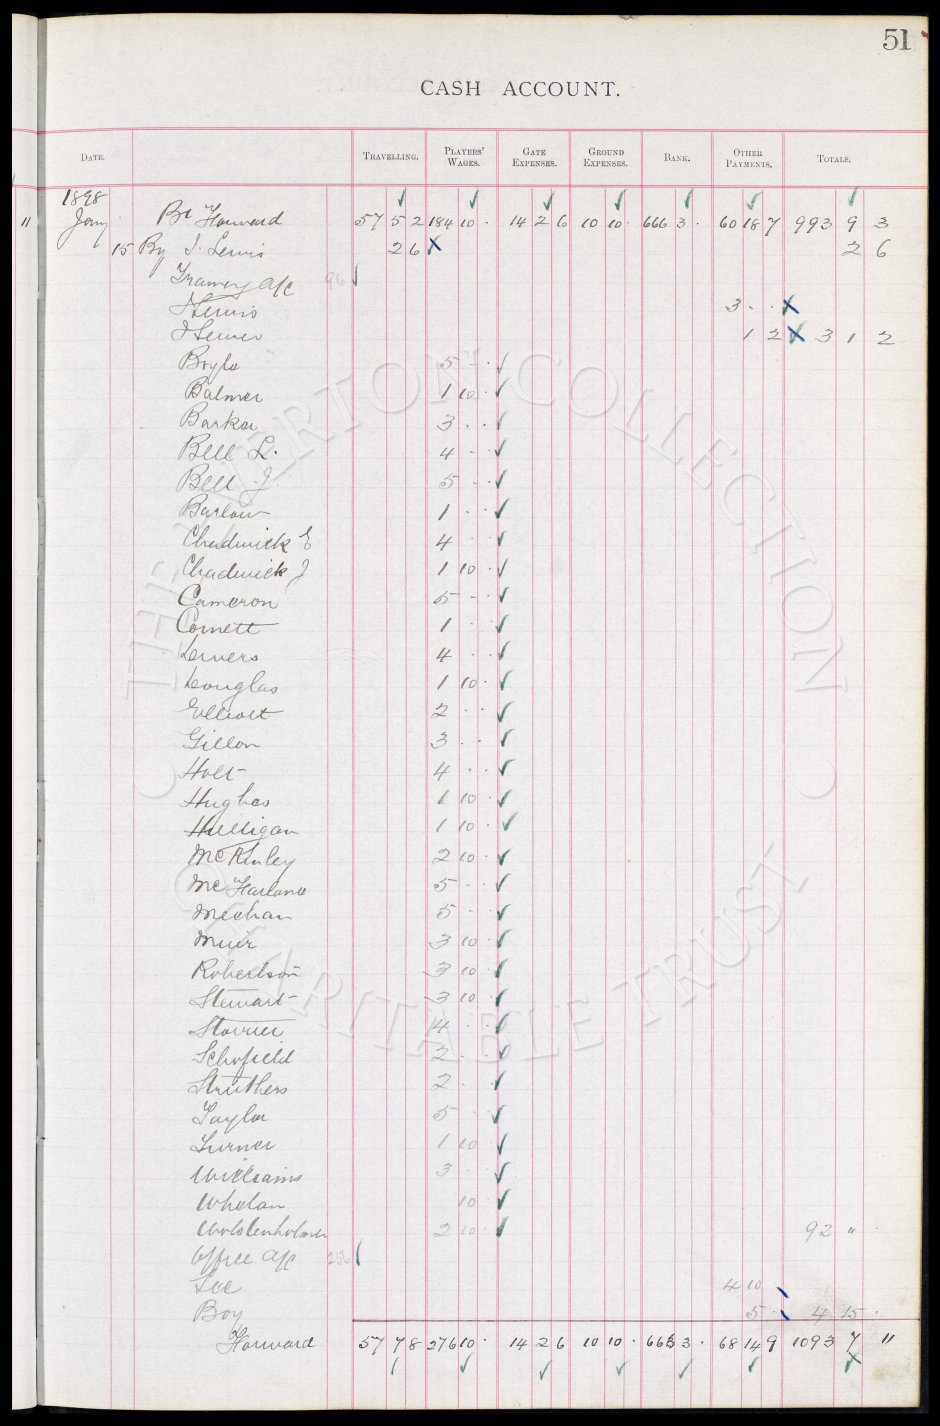 51
CASH ACCOUNT.
DATE. TRAVELLING. PLAYERS' WAGES. GATE EXPENSES. GROUND EXPENSES. BANK. OTHER PAYMENTS. TOTALS.
1898
" Jany Bt Forward 57 5 2 184 10 · 14 2 6 10 10 · 666 3 · 60 18 7 993 9 3
15 By J. Lewis 2 6 2 6
a/c 96
J Lewis 3 · ·
J Lewis 1 2 3 1 2
Boyle 5 - ·
Balmer 1 10 ·
Barker 3 · ·
Bell L. 4 - ·
Bell J. 5 - ·
Barlow 1 · ·
Chadwick E 4 · ·
Chadwick J 1 10 ·
Cameron 5 - ·
Cornett 1 · ·
Divers 4 · ·
Douglas 1 10 ·
Elliott 2 · ·
Gillon 3 · ·
Holt 4 · ·
Hughes 1 10 ·
Hulligan 1 10 ·
McKinley 2 10 ·
McFarlane 5 - ·
Meehan 5 - ·
Muir 3 10 ·
Robertson 3 10 ·
Stewart 3 10 ·
Storrier 4 · ·
Schofield 2 · ·
Struthers 2 · ·
Taylor 5 · ·
Turner 1 10 ·
Williams 3 · ·
Whelan 10 ·
Wolstenholmes 2 10 · 92 " ·
Office a/c
Lee 4 10
Boy 5 · 4 15 ·
Forward 57 7 8 276 10 · 14 2 6 10 10 · 666 3 · 68 14 9 1093 7 "
THE EVERTON COLLECTION
CHARITABLE TRUST